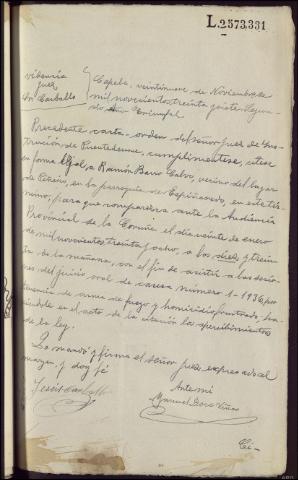 L.2373.331
Providencia
juez
Sr Carballo
Capela, veintinueve de Noviembre de
mil novecientos treinta y siete. Segun-
do Año Triunfal
Precedente carta-orden del señor Juez de Ins-
trucción de Puentedeume, cumplimentese, citese
en forma legal, a Ramón Barro Calvo, vecino del lugar
de en la parroquia de Espiñaredo, en este tér-
mino, para que comparezca ante la Audiencia
Provincial de la Coruña el día veinte de enero
de mil novecientos treinta y ocho, a las diez y trein-
ta de la mañana, con el fin de asistir a las sesio-
nes del juicio oral de causa número 1-1936, por
tenencia de arma de fuego y homicidio frustrado, ha-
ciéndole en el acto de la citación los apercibimientos
de la ley.
Lo mandó y firma el señor Juez expresado al
margen, y doy fé
Jesús Carballo
Ante mi
Manuel
Ci-